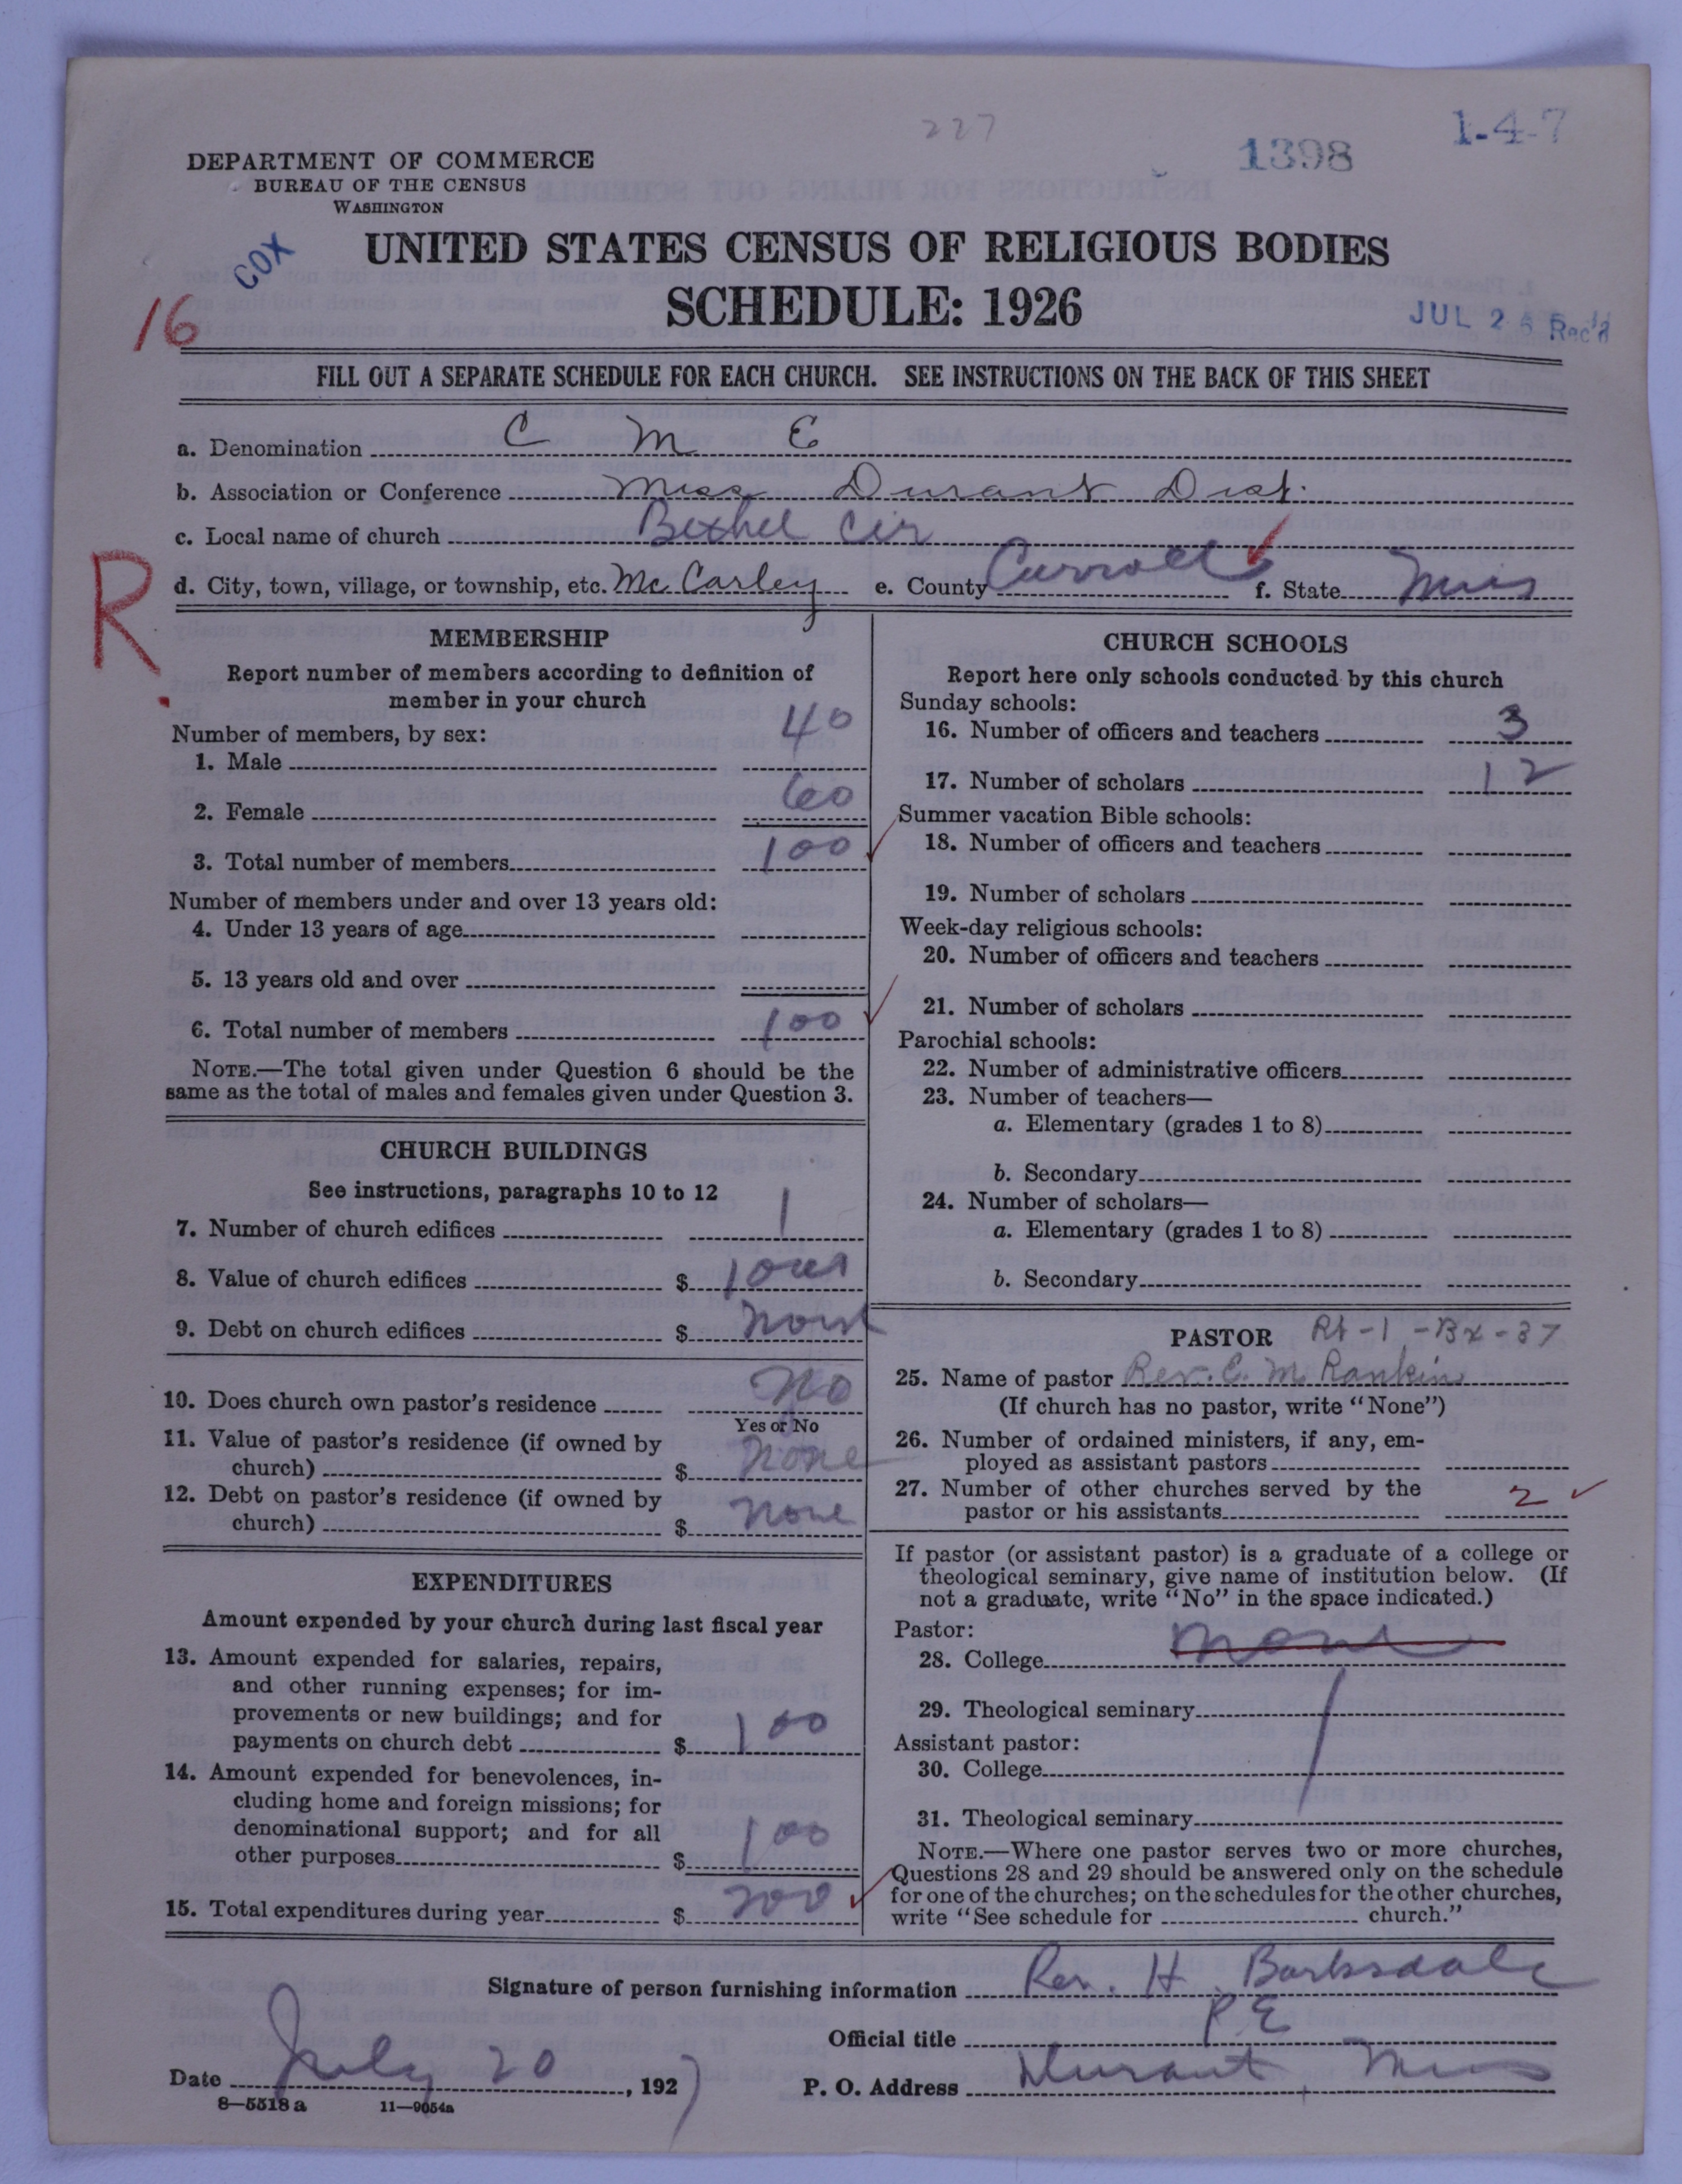 227
1398
1-4-7
DEPARTMENT OF COMMERCE
BUREAU OF THE CENSUS
WASHINGTON
COX
UNITED STATES CENSUS OF RELIGIOUS BODIES
SCHEDULE: 1926
16
JUL 25 Rec'd
FILL OUT A SEPARATE SCHEDULE FOR EACH CHURCH. SEE INSTRUCTIONS ON THE BACK OF THIS SHEET
a. Denomination C M E
b. Association or Conference Miss Durant Dist.
c. Local name of church Bethel Cir
R.
d. City, town, village, or township, etc. McCarley e. County Carroll f. State Miss
MEMBERSHIP
Report number of members according to definition of
member in your church
Number of members, by sex:
1. Male 40
2. Female 60
3. Total number of members 100
Number of members under and over 13 years old:
4. Under 13 years of age
5. 13 years old and over
6. Total number of members 100
NOTE.—The total given under Question 6 should be the
same as the total of males and females given under Question 3.
CHURCH BUILDINGS
See instructions, paragraphs 10 to 12
7. Number of church edifices 1
8. Value of church edifices $
9. Debt on church edifices $
10. Does church own pastor's residence No
Yes or No
11. Value of pastor's residence (if owned by
church) $ None
12. Debt on pastor's residence (if owned by
church) $ None
EXPENDITURES
Amount expended by your church during last fiscal year
13. Amount expended for salaries, repairs,
and other running expenses; for im-
provements or new buildings; and for
payments on church debt $ 100
14. Amount expended for benevolences, in-
cluding home and foreign missions; for
denominational support; and for all
other purposes $ 100
15. Total expenditures during year $ 200
CHURCH SCHOOLS
Report here only schools conducted by this church
Sunday schools:
16. Number of officers and teachers 3
17. Number of scholars 12
Summer vacation Bible schools:
18. Number of officers and teachers
19. Number of scholars
Week-day religious schools:
20. Number of officers and teachers
21. Number of scholars
Parochial schools:
22. Number of administrative officers
23. Number of teachers—
a. Elementary (grades 1 to 8)
b. Secondary
24. Number of scholars—
a. Elementary (grades 1 to 8)
b. Secondary
PASTOR Rt-1-Bx-37
25. Name of pastor Rev. C. M. Rankin
(If church has no pastor, write "None")
26. Number of ordained ministers, if any, em-
ployed as assistant pastors
27. Number of other churches served by the
pastor or his assistants 2
If pastor (or assistant pastor) is a graduate of a college or
theological seminary, give name of institution below. (If
not a graduate, write "No" in the space indicated.)
Pastor:
28. College None
29. Theological seminary
Assistant pastor:
30. College
31. Theological seminary
NOTE.—Where one pastor serves two or more churches,
Questions 28 and 29 should be answered only on the schedule
for one of the churches; on the schedules for the other churches,
write "See schedule for church."
Signature of person furnishing information Rev. H. Barksdale
Official title P. E
Date July 20, 1927 P. O. Address Durant, Miss
8—5518a 11—9054a